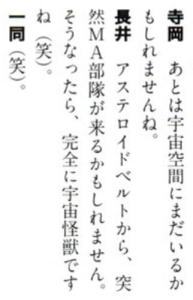 寺岡　あとは宇宙空間にまだいるか
もしれませんね。
長井　アステロイドベルトから、突
然ＭＡ部隊が来るかもしれません。
そうなったら、完全に宇宙怪獣です
ね（笑）。
一同（笑）。